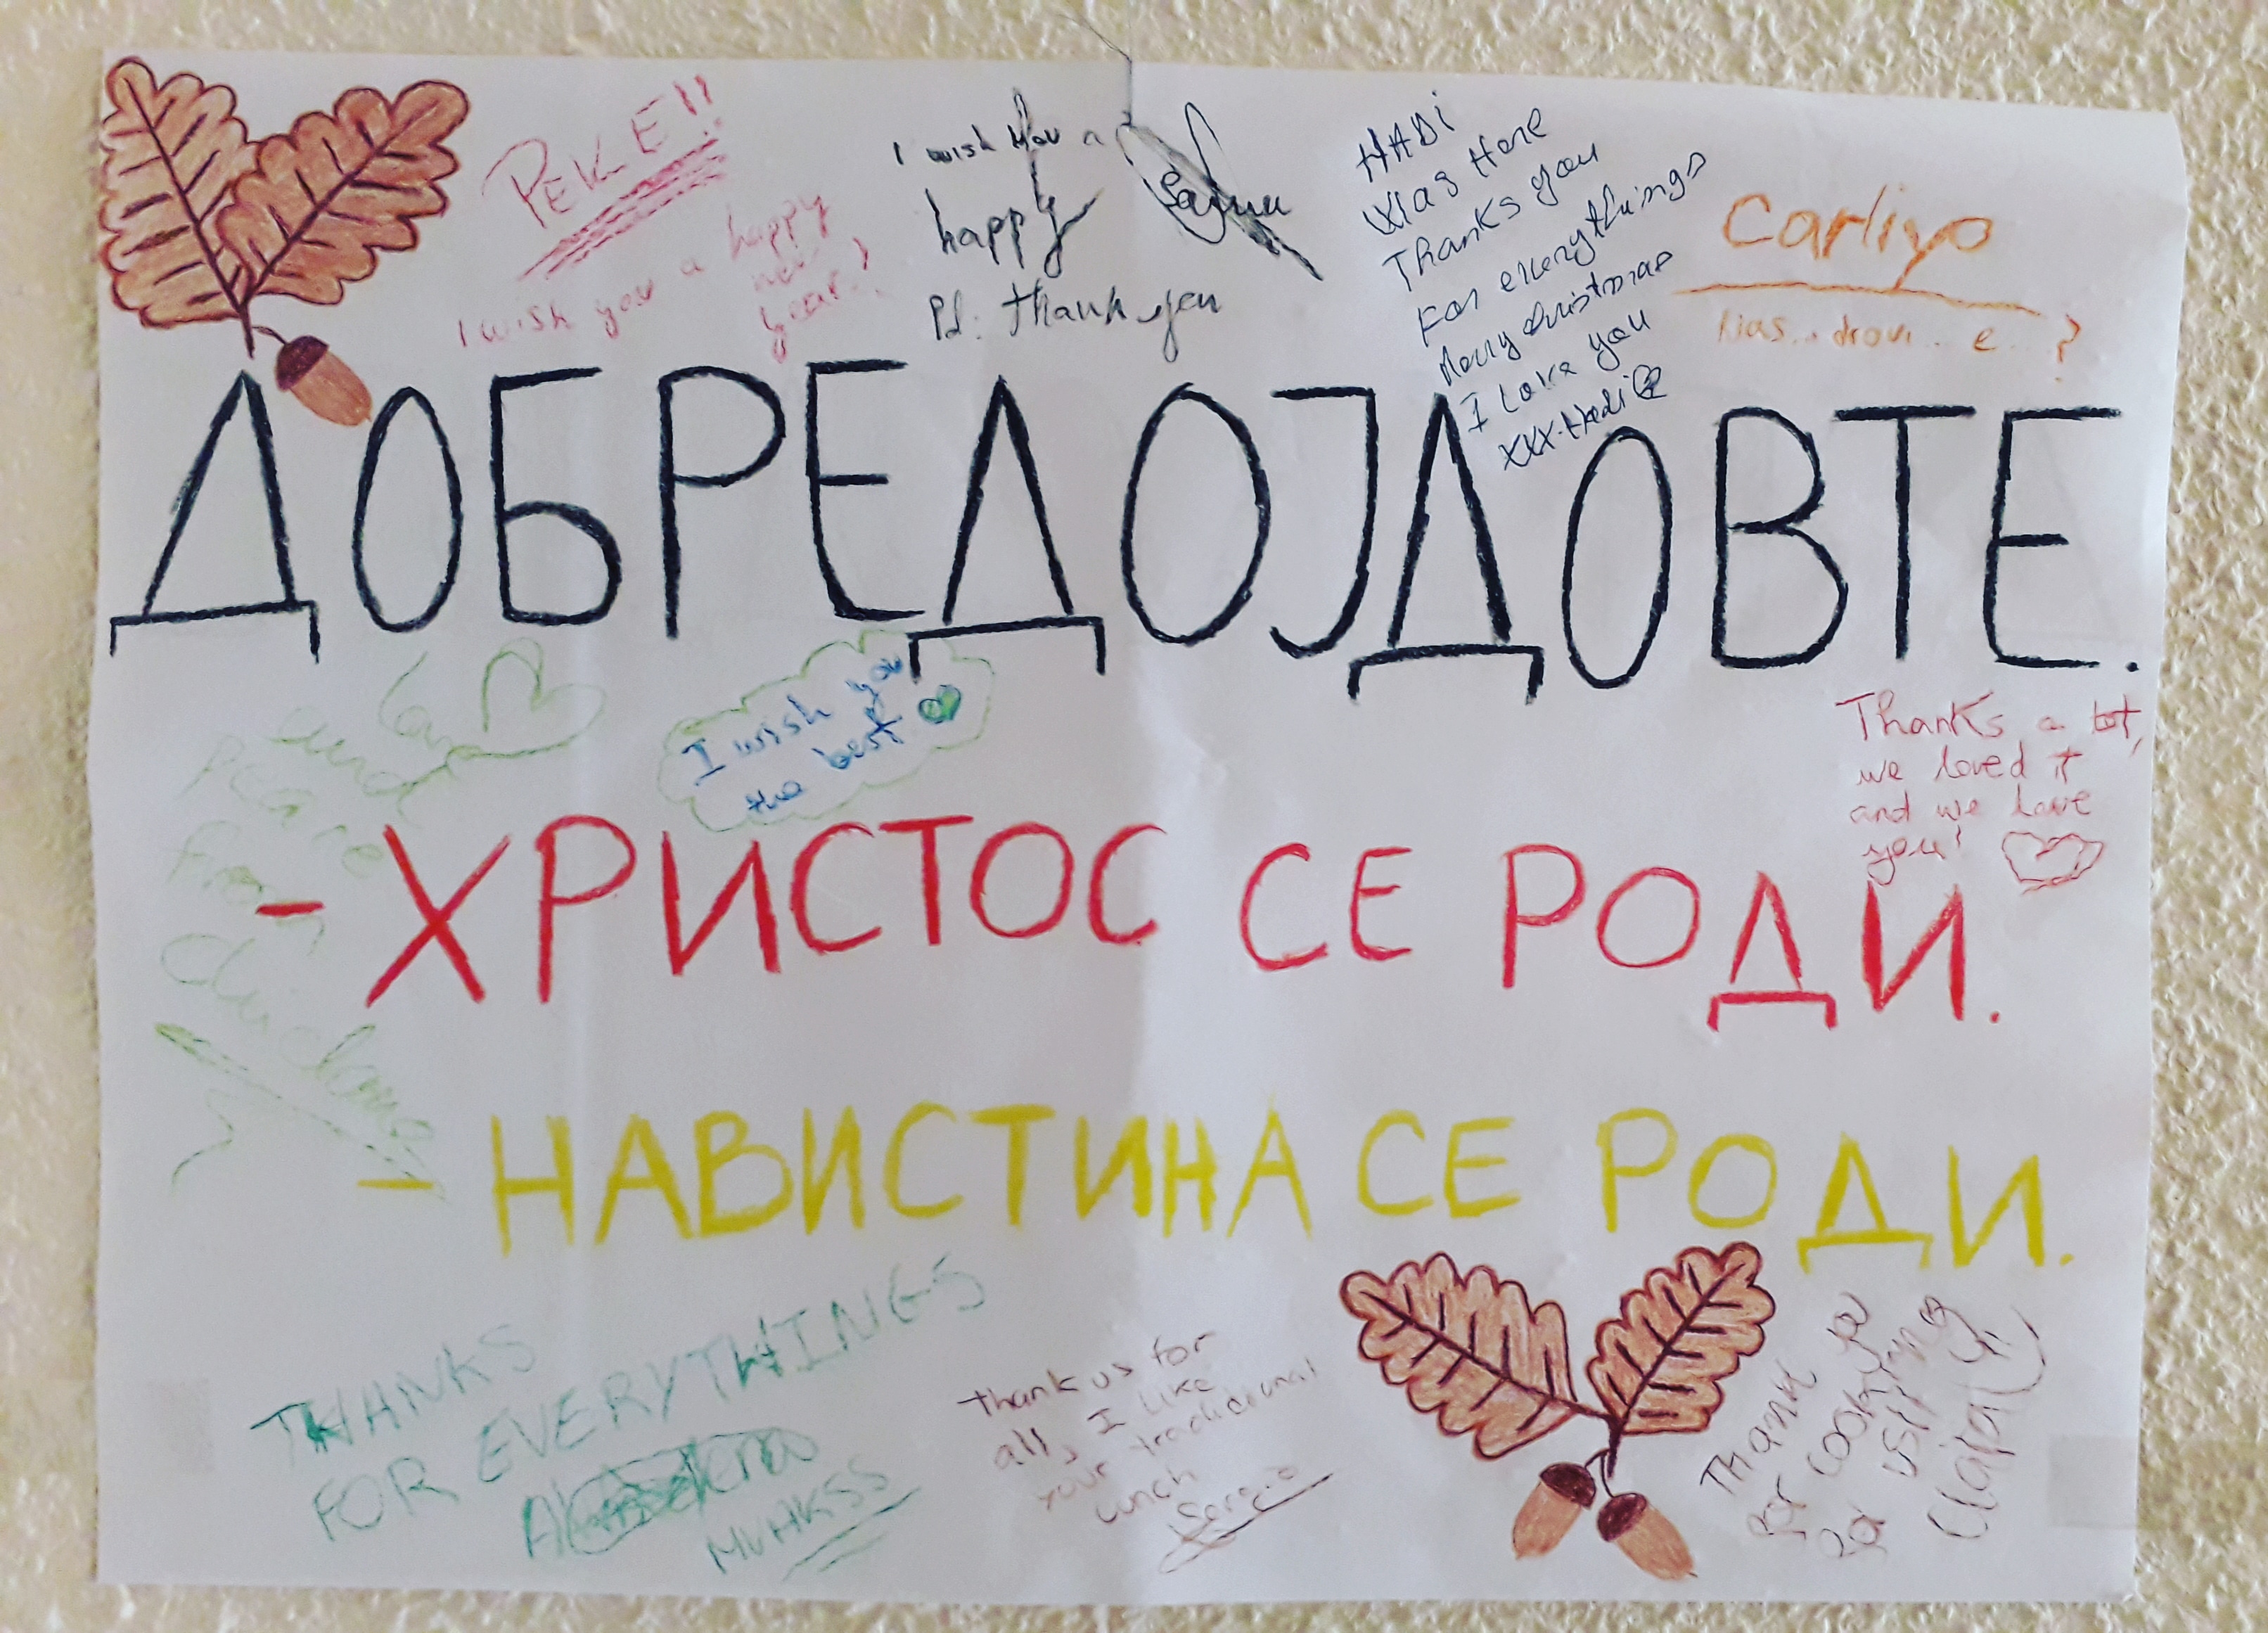 PEKE!!
I wish you a happy
new
year!
I wish you a
happy
Pd: thank you
HADi
Was Here
Thanks you
For everythings
Merry christmas
I Love you
XXX-Hadi
Carliyo
ДОБРЕДОЈДОВТЕ.
love
and
peace
from
I wish you
the best
Thanks a lot,
we loved it
and we love
you!
- ХРИСТОС СЕ РОДИ.
- НАВИСТИНА СЕ РОДИ.
THANKS
FOR EVERYTHINGS
MUHKSS
thank us for
all, I like
your tradicional
lunch
Sergio
Thank you
for cooking
for us!!